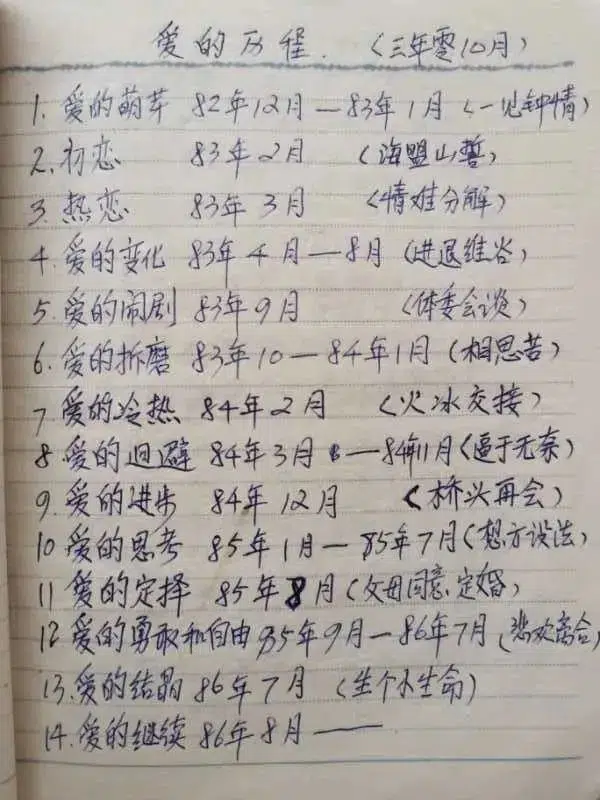 爱的历程.（三年零10月）
1. 爱的萌芽 82年12月—83年1月（一见钟情）
2. 初恋 83年2月（海盟山誓）
3. 热恋 83年3月（情难分解）
4. 爱的变化 83年4月—8月（进退维谷）
5. 爱的闹剧 83年9月（体委会谈）
6. 爱的折磨 83年10—84年1月（相思苦）
7 爱的冷热 84年2月（火冰交接）
8 爱的迴避 84年3月—84年11月（逼于无奈）
9. 爱的进步 84年12月（桥头再会）
10 爱的思考 85年1月—85年7月（想方设法）
11 爱的定择 85年8月（父母同意.定婚）
12 爱的勇敢和自由 85年9月—86年7月（悲欢离合）
13. 爱的结晶 86年7月（生个小生命）
14. 爱的继续 86年8月——